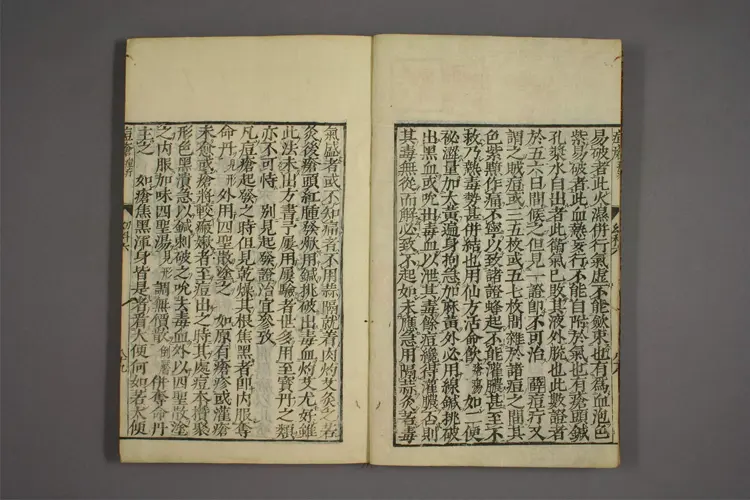 易破者此火濕併行氣虛不能斂束也有為血泡色
紫易破者此血熱妄行不能自附於氣也有瘡頭鍼
孔漿水自出者此衛氣已敗其液外脫也此數證者
於五六日間候之但見一證即不可治 薜痘疔又
謂之賊痘或三五枚或五七枚間雜於諸痘之間其
色紫黯作痛不寧以致諸證蜂起不能灌膿甚至不
救乃熱毒勢甚併結也用仙方活命飲 如一便
祕澀量加大黃遍身拘急加麻黃外必用線鍼挑破
出黑血或吮出毒血以泄其毒餘痘纔得灌膿否則
其毒無從而解必致不起如未應急用隔蒜灸若毒
氣盛者或不知痛者不用蒜隔就着肉灼艾灸之若
灸後瘡頭紅腫發焮用鍼挑破出毒血灼艾尤好雖
此法未出方書予屢用屢驗者世多用至寶丹之類
亦不可恃 別見起發證治宜參攷
凡痘瘡起發之時但見乾燥其根焦黑者即內服奪
命丹 外用四聖散塗之 如原有瘡疹或灌瘡
未愈或瘡將較嫩者至痘出之時其處痘本攢聚
形色黑潰急以鍼刺破之吮去毒血外以四聖散塗
之內服加味四聖湯 調無價散 併奪命丹
主之 如瘡焦黑渾身皆是者看大便何如若大便